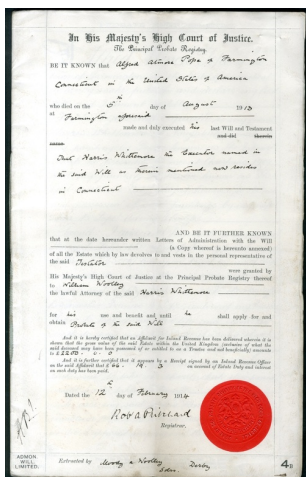 In His Majesty's High Court of Justice.
The Principal Probate Registry.
BE IT KNOWN that Alfred Atmore Pope of Farmington
Connecticut in the United States of America
who died on the 5th day of August 1913
at Farmington aforesaid
made and duly executed his last Will and Testament
and did therein
name
That Harris Whittemore the Executor named in
the said Will as therein mentioned now resides
in Connecticut
AND BE IT FURTHER KNOWN
that at the date hereunder written Letters of Administration with the Will
(a Copy whereof is hereunto annexed)
of all the Estate which by law devolves to and vests in the personal representative of
the said Testator
were granted by
His Majesty's High Court of Justice at the Principal Probate Registry thereof
to William Woolley
the lawful Attorney of the said Harris Whittemore
for his use and benefit and until he shall apply for and
obtain Probate of the said Will
And it is hereby certified that an Affidavit for Inland Revenue has been delivered wherein it is
shewn that the gross value of the said Estate within the United Kingdom (exclusive of what the
said deceased may have been possessed of or entitled to as a Trustee and not beneficially) amounts
to £2200 - 0 - 0
And it is further certified that it appears by a Receipt signed by an Inland Revenue Officer
on the said Affidavit that £66. 19. 3 on account of Estate Duty and interest
on such duty has been paid.
Dated the 12th day of February 1914
Registrar.
ADMON.
WILL
LIMITED.
Extracted by Moody & Woolley
Solrs. Derby
4D